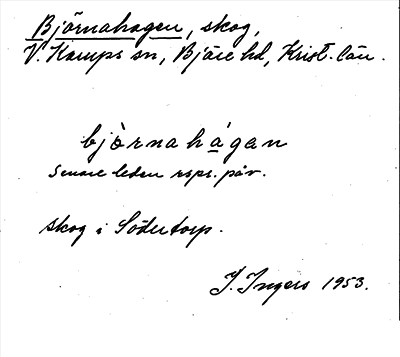 Björnahagen, skog,
V. Karups sn, Bjäre hd, Krist. län.
bjὸrnahágan
senare leden rspr. påv.
skog i Södertorp.
I. Ingers 1953.